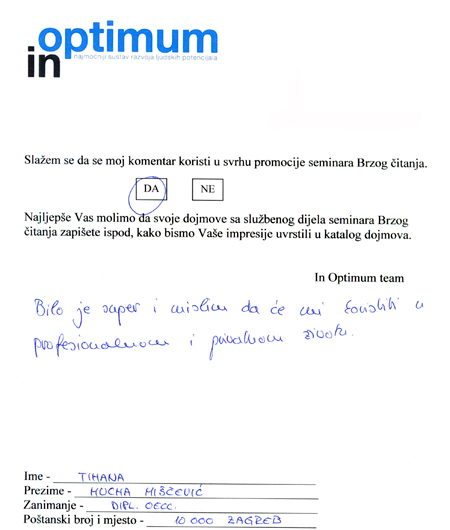 optimum
in
najmoćniji sustav razvoja ljudskih potencijala
Slažem se da se moj komentar koristi u svrhu promocije seminara Brzog čitanja.
DA NE
Najljepše Vas molimo da svoje dojmove sa službenog dijela seminara Brzog
čitanja zapišete ispod, kako bismo Vaše impresije uvrstili u katalog dojmova.
In Optimum team
Bilo je super i mislim da će mi koristiti u
profesionalnom i privatnom životu.
Ime - TIHANA
Prezime - MUCHA MIŠČEVIĆ
Zanimanje - DIPL. OECC.
Poštanski broj i mjesto - 10 000 ZAGREB